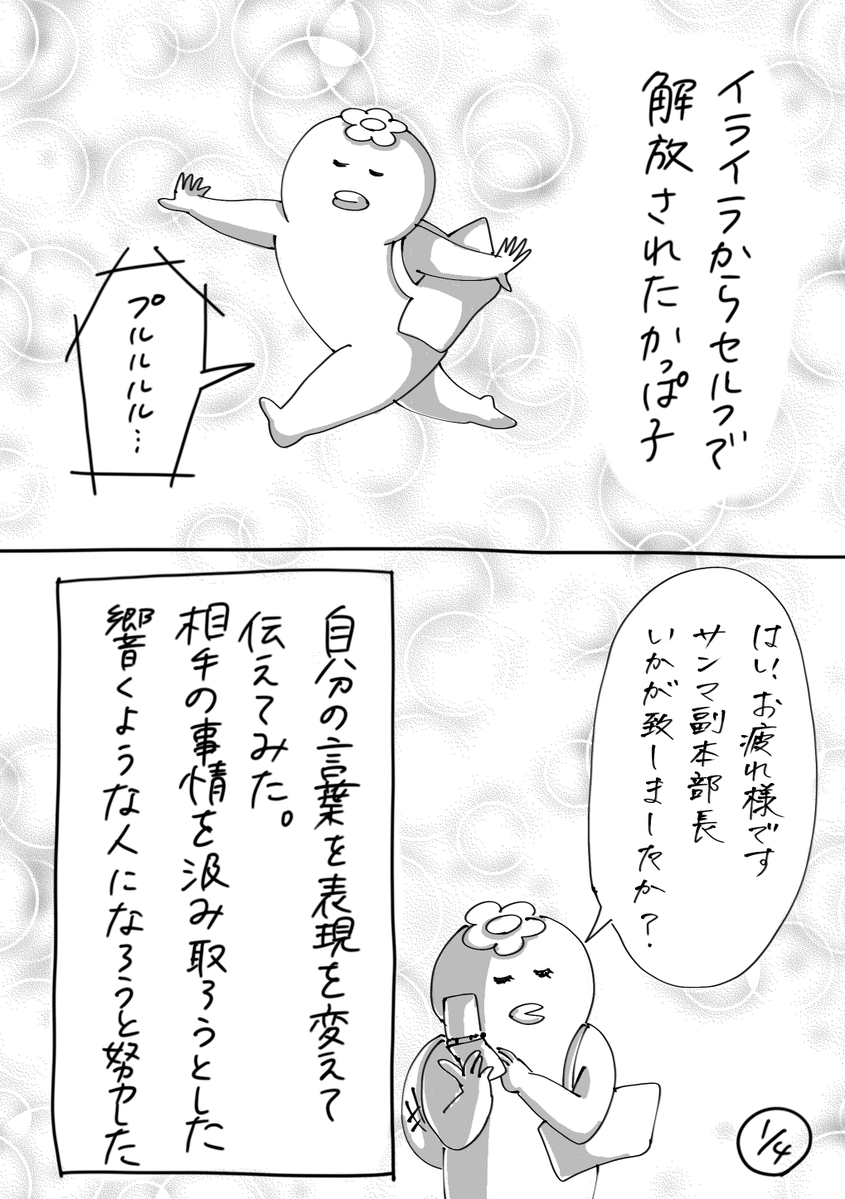 イライラからセルフで
解放されたかっぱ子
プルルルル…
はい、お疲れ様です
サンマ副本部長
いかが致しましたか？
自分の言葉を表現を変えて
伝えてみた。
相手の事情を汲み取ろうとした
響くような人になろうと努めた
1/4